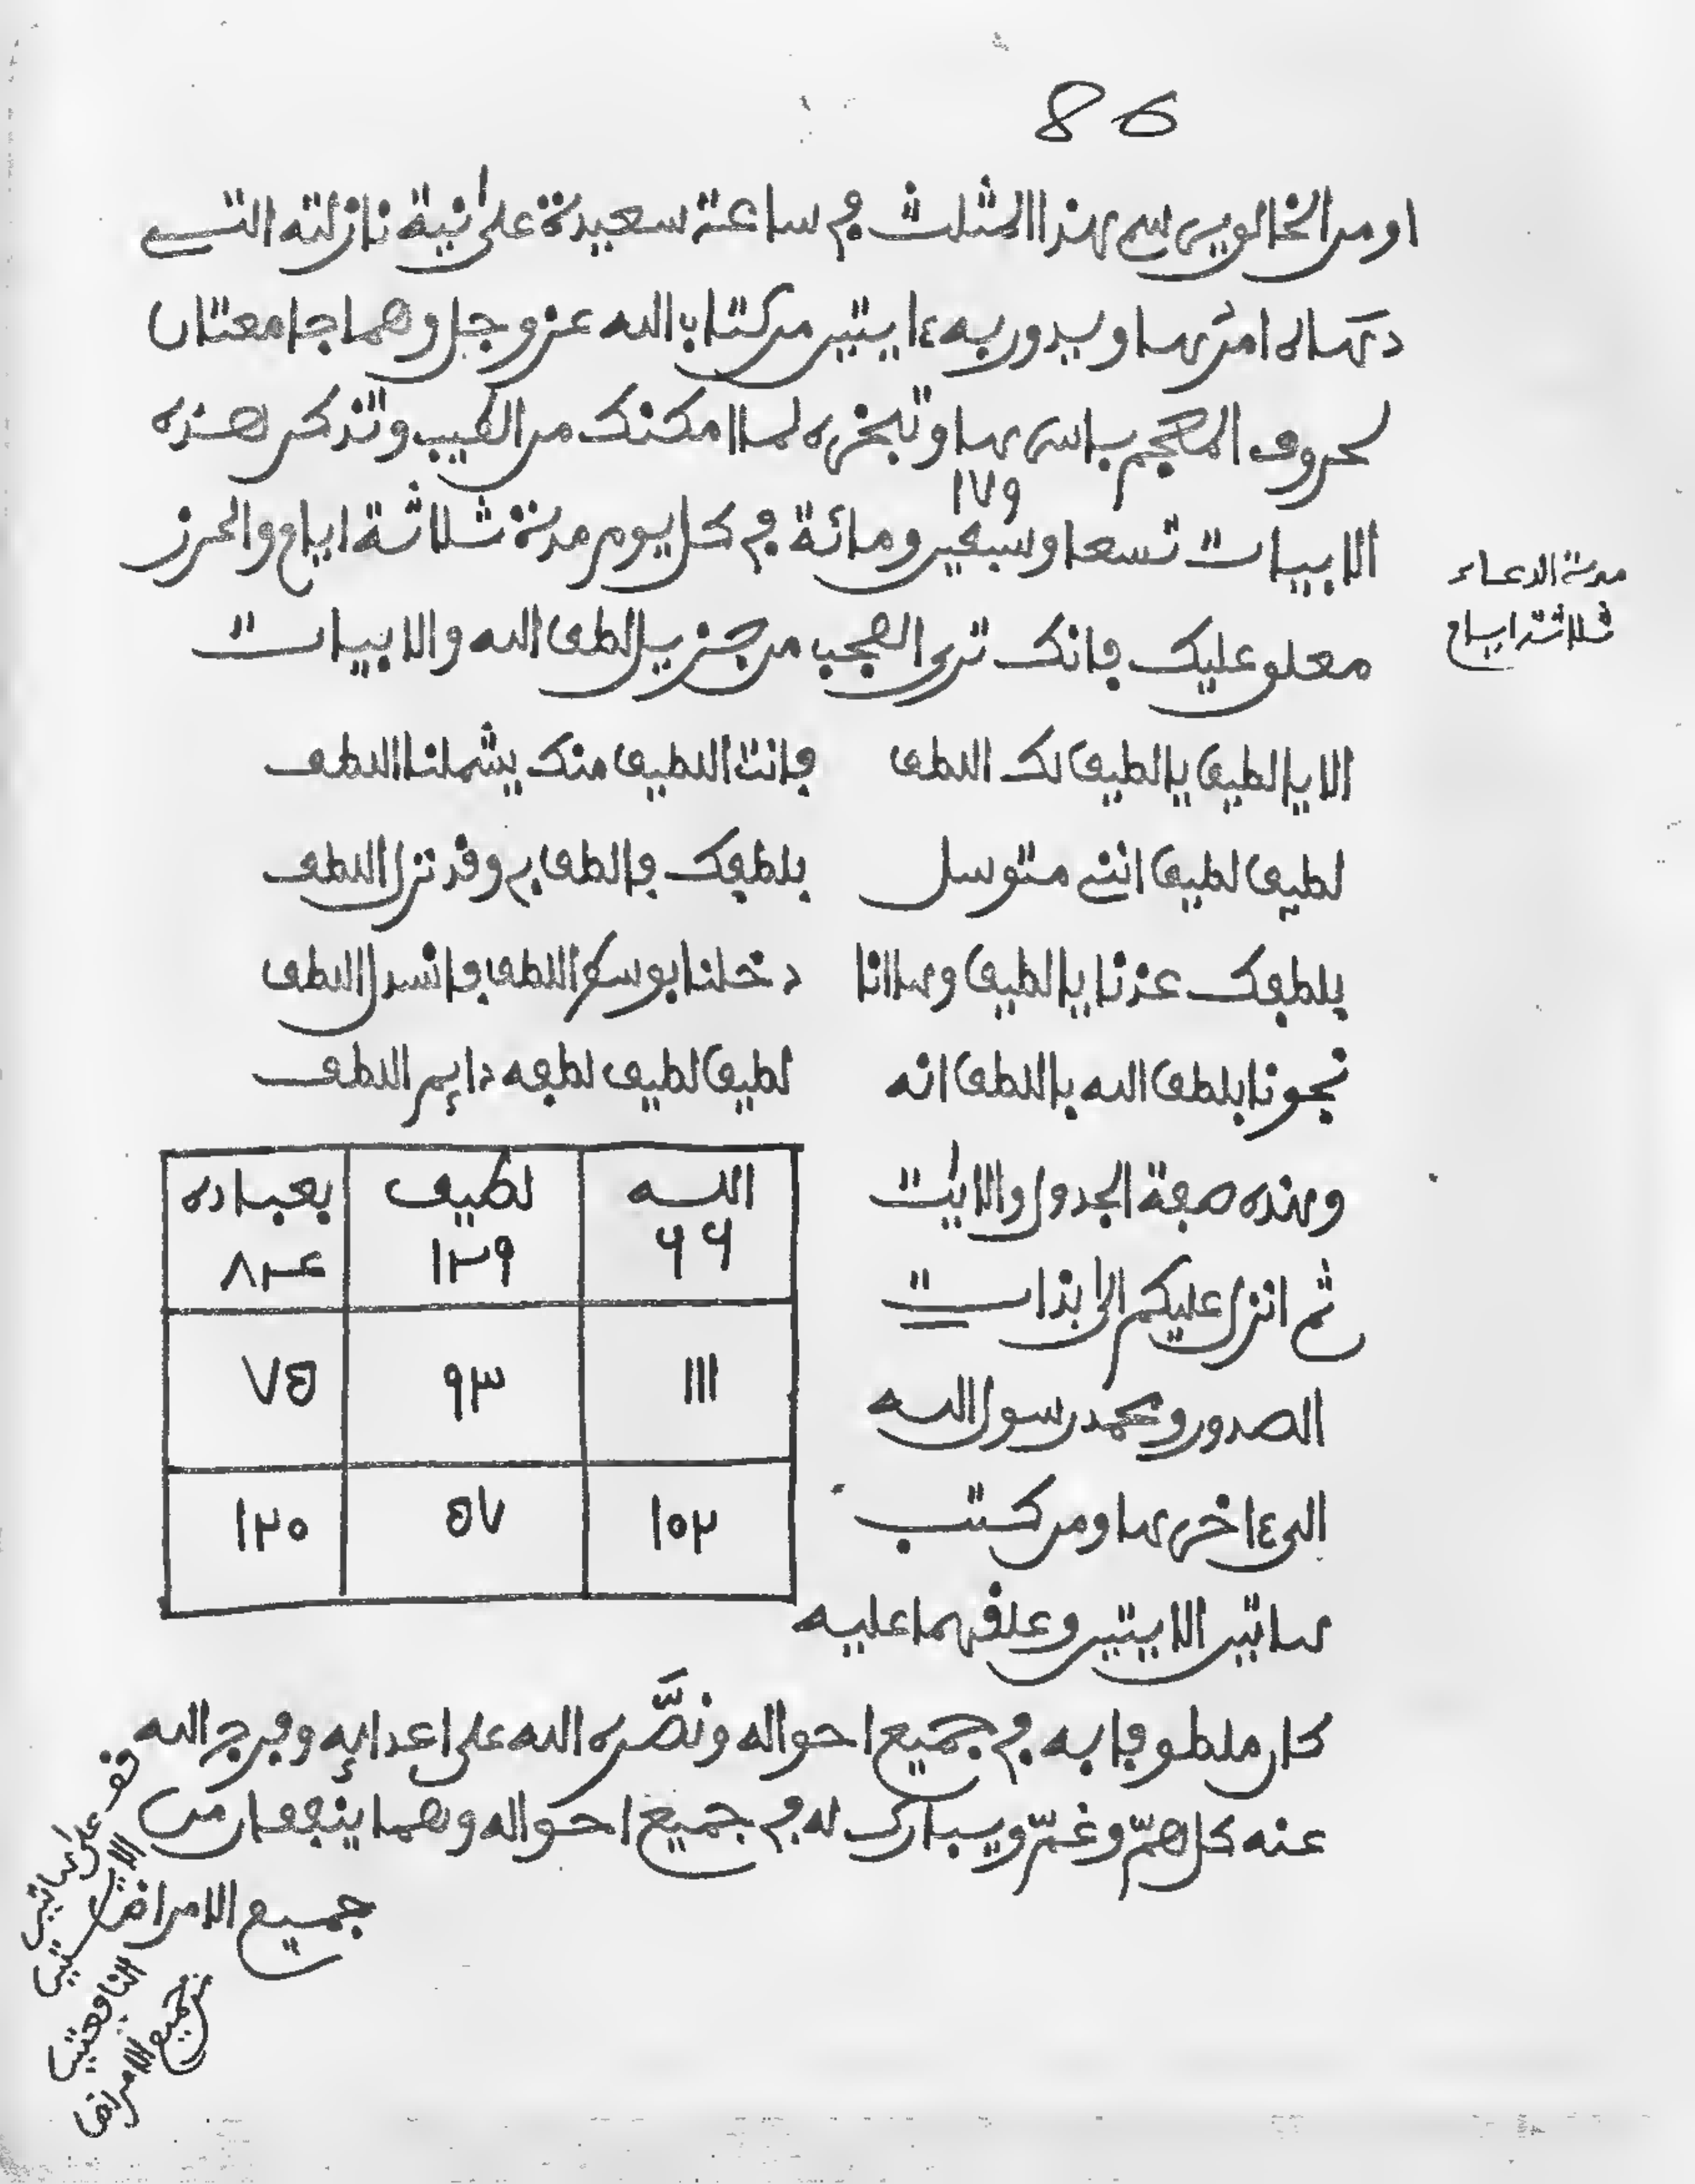 86
او من المخالويں يرسم هذا المثلث في ساعة سعيدة على نية نازلته التي
دهاه امرها ويدور به ءايتين من كتاب الله عز وجل وهما جامعتان
لحروف المعجم باسرها وتبخره لما امكنك من الطيب وتذكر هذه
١٧٩
الابيات تسعا وسبعين ومائة في كل يوم مدة ثلاثة ايام والحرز
مدة الدعاء
ثلاثة ايام
معلق عليك فانك ترى العجب من جزيل لطف الله والابيات
الا يا لطيف يا لطيف لك اللطف فانت اللطيف منك يشملنا اللطف
لطيف لطيف انني متوسل بلطفك فالطف بي وقد نزل اللطف
بلطفك عذنا يا لطيف وها انا دخلنا بوسط اللطف فانسدل اللطف
نجونا بلطف الله باللطف انه لطيف لطيف لطفه دايم اللطف
وهذه صفة الجدول والايت
ثم انزل عليكم الى بذات
الصدور ومحمد رسول الله
الى ءاخرها ومن كتب
هاتين الايتين وعلقهما عليه
الله لطيف بعباده
٦٦ ١٢٩ ٨٤
١١١ ٩٣ ٧٥
١٠٢ ٥٧ ١٢٠
كان ملطوفا به في جميع احواله ونصره الله على اعدايه وفرج الله
عنه كل هم وغم ويبارك له في جميع احواله وهما ينفعان من
جميع الامراض
قف على هاتين
الايتين
النافعتين
من جميع الامراض